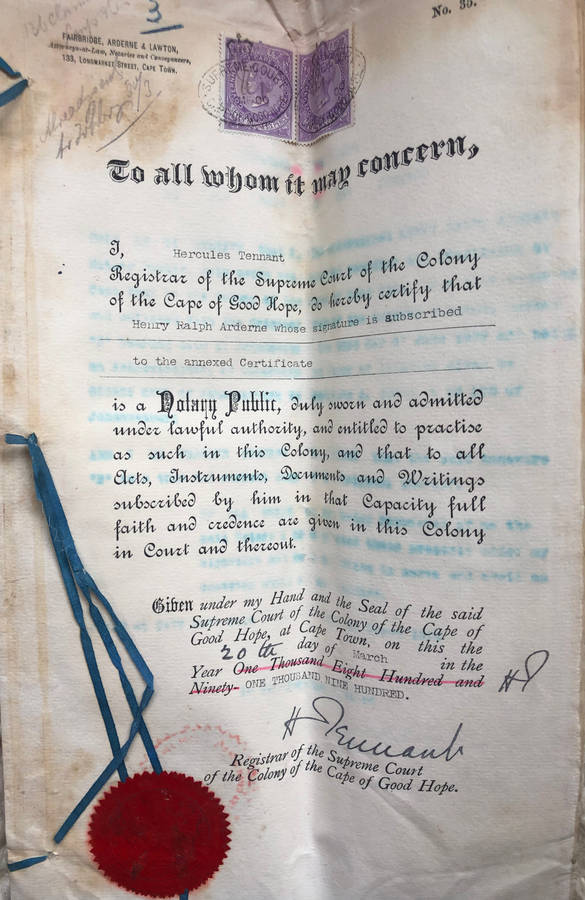 3
No. 35.
FAIRBRIDGE, ARDERNE & LAWTON,
Attorneys-at-Law, Notaries and Conveyancers,
133, LONGMARKET STREET, CAPE TOWN.
SUPREME COURT
To all whom it may concern,
I, Hercules Tennant
Registrar of the Supreme Court of the Colony
of the Cape of Good Hope, do hereby certify that
Henry Ralph Arderne whose signature is subscribed
to the annexed Certificate
is a Notary Public, duly sworn and admitted
under lawful authority, and entitled to practise
as such in this Colony, and that to all
Acts, Instruments, Documents and Writings
subscribed by him in that Capacity full
faith and credence are given in this Colony
in Court and thereout.
Given under my Hand and the Seal of the said
Supreme Court of the Colony of the Cape of
Good Hope, at Cape Town, on this the
20th day of March in the
Year One Thousand Eight Hundred and
Ninety- ONE THOUSAND NINE HUNDRED.
HT
H Tennant
Registrar of the Supreme Court
of the Colony of the Cape of Good Hope.